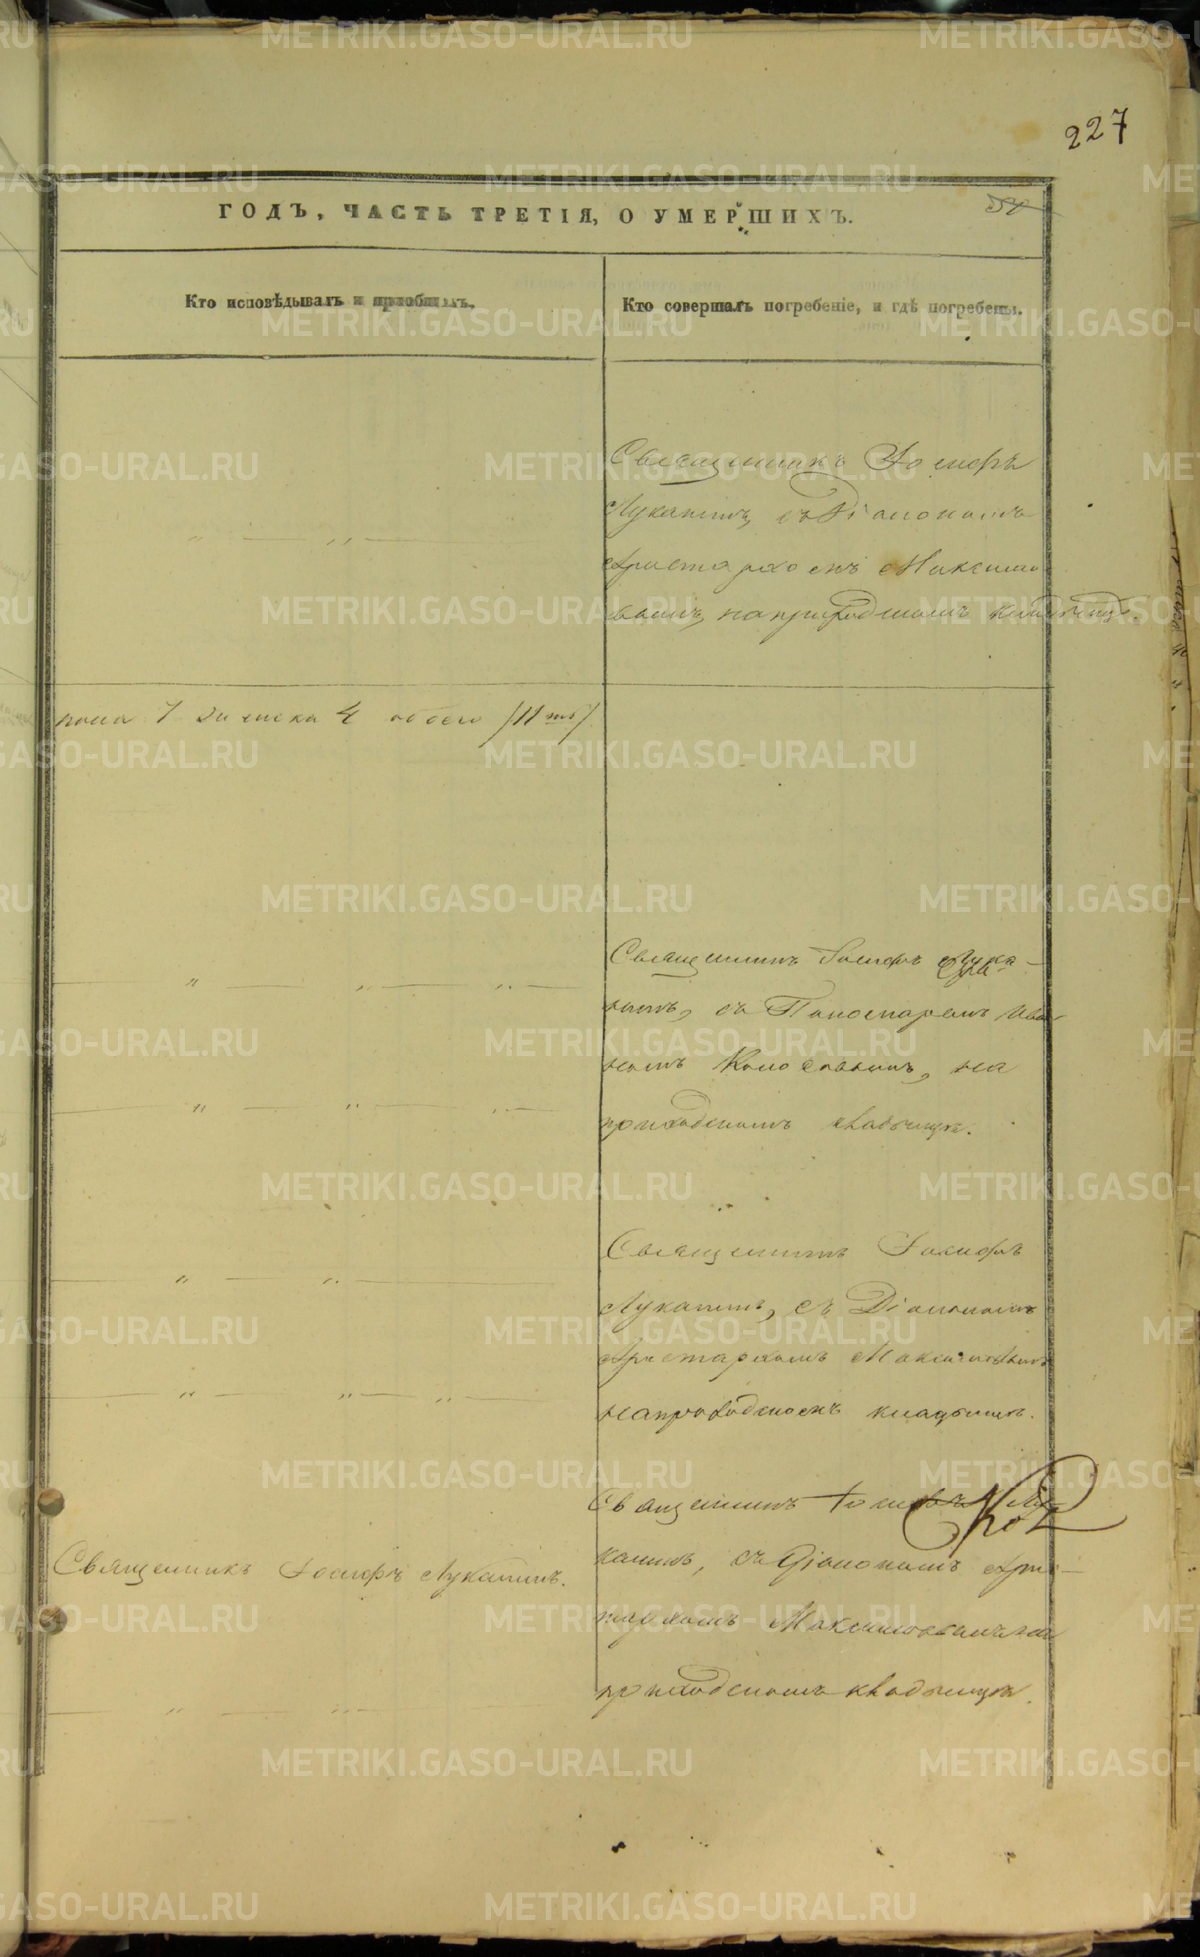 227
ГОДЪ, ЧАСТЬ ТРЕТІЯ, О УМЕРШИХЪ.
Кто исповѣдывалъ и пріобщалъ.
Кто совершалъ погребеніе, и гдѣ погребены.
Священникъ Іосифъ
Лукатинъ, съ Діакономъ
Аристархомъ Максимо
вымъ, на приходскомъ кладбищѣ.
пола 7 женска 4 обоего /11ть/
Священникъ Іосифъ Лука-
тинъ, съ Пономаремъ Ива-
номъ, на
приходскомъ кладбищѣ.
Священникъ Іосифъ
Лукатинъ, съ Діакономъ
Аристархомъ Максимовымъ
на приходскомъ кладбищѣ.
Священникъ Іосифъ Лу-
катинъ, съ Діакономъ Арис-
тархомъ Максимовымъ на
приходскомъ кладбищѣ.
Священникъ Іосифъ Лукатинъ.
METRIKI.GASO-URAL.RU